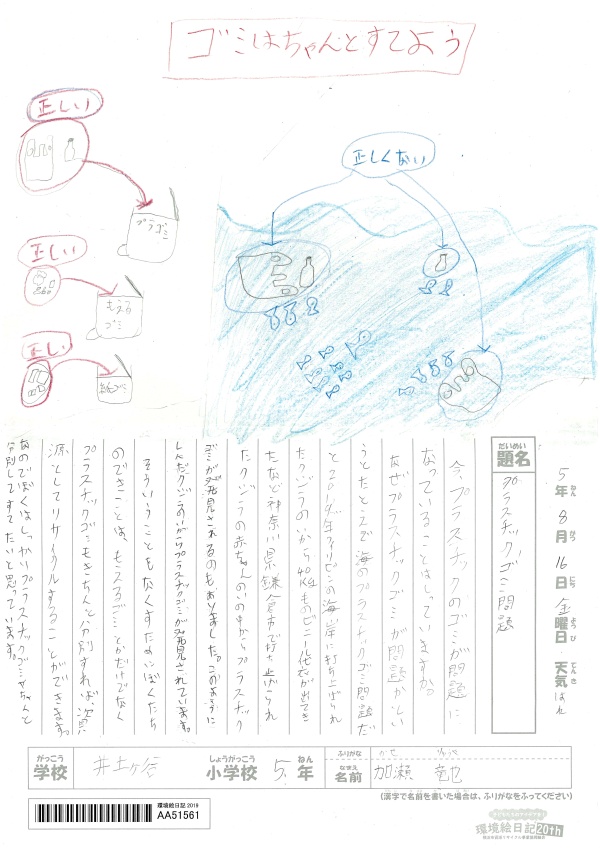 ゴミはちゃんとすてよう
正しい
プラゴミ
正しい
もえる
ゴミ
正しい
正しくない
5年 8月 16日 金曜日 天気 はれ
ねん がつ にち ようび てんき
だいめい
題名
プラスチックゴミ問題
今、プラスチックのゴミが問題に
なっていることはしっていますか。
なぜプラスチックゴミが問題かとい
うとたとえで海のプラスチックゴミ問題だ
と2019年フィリピンの海岸に打ち上げられ
たクジラのいから40kgものビニール袋が出てき
たなど神奈川県鎌倉市で打ち上げられ
たクジラの赤ちゃんのいの中からプラスチック
ゴミが発見されるのもありました。このように
しんだクジラのいからプラスチックゴミが発見されています。
そういうこともなくすためにぼくたち
のできることは、もえるゴミとかだけでなく
プラスチックゴミもきちんと分別すれば、資
源としてリサイクルすることができます。
なのでぼくはしっかりプラスチックゴミをちゃんと
分別してすてたいと思っています。
がっこう
学校
井土ヶ谷
しょうがっこう
小学校
5 ねん
年
ふりがな
なまえ
名前
かせ
加瀬 竜也
(漢字で名前を書いた場合は、ふりがなをふってください)
環境絵日記 2019
AA51561
環境絵日記 20th